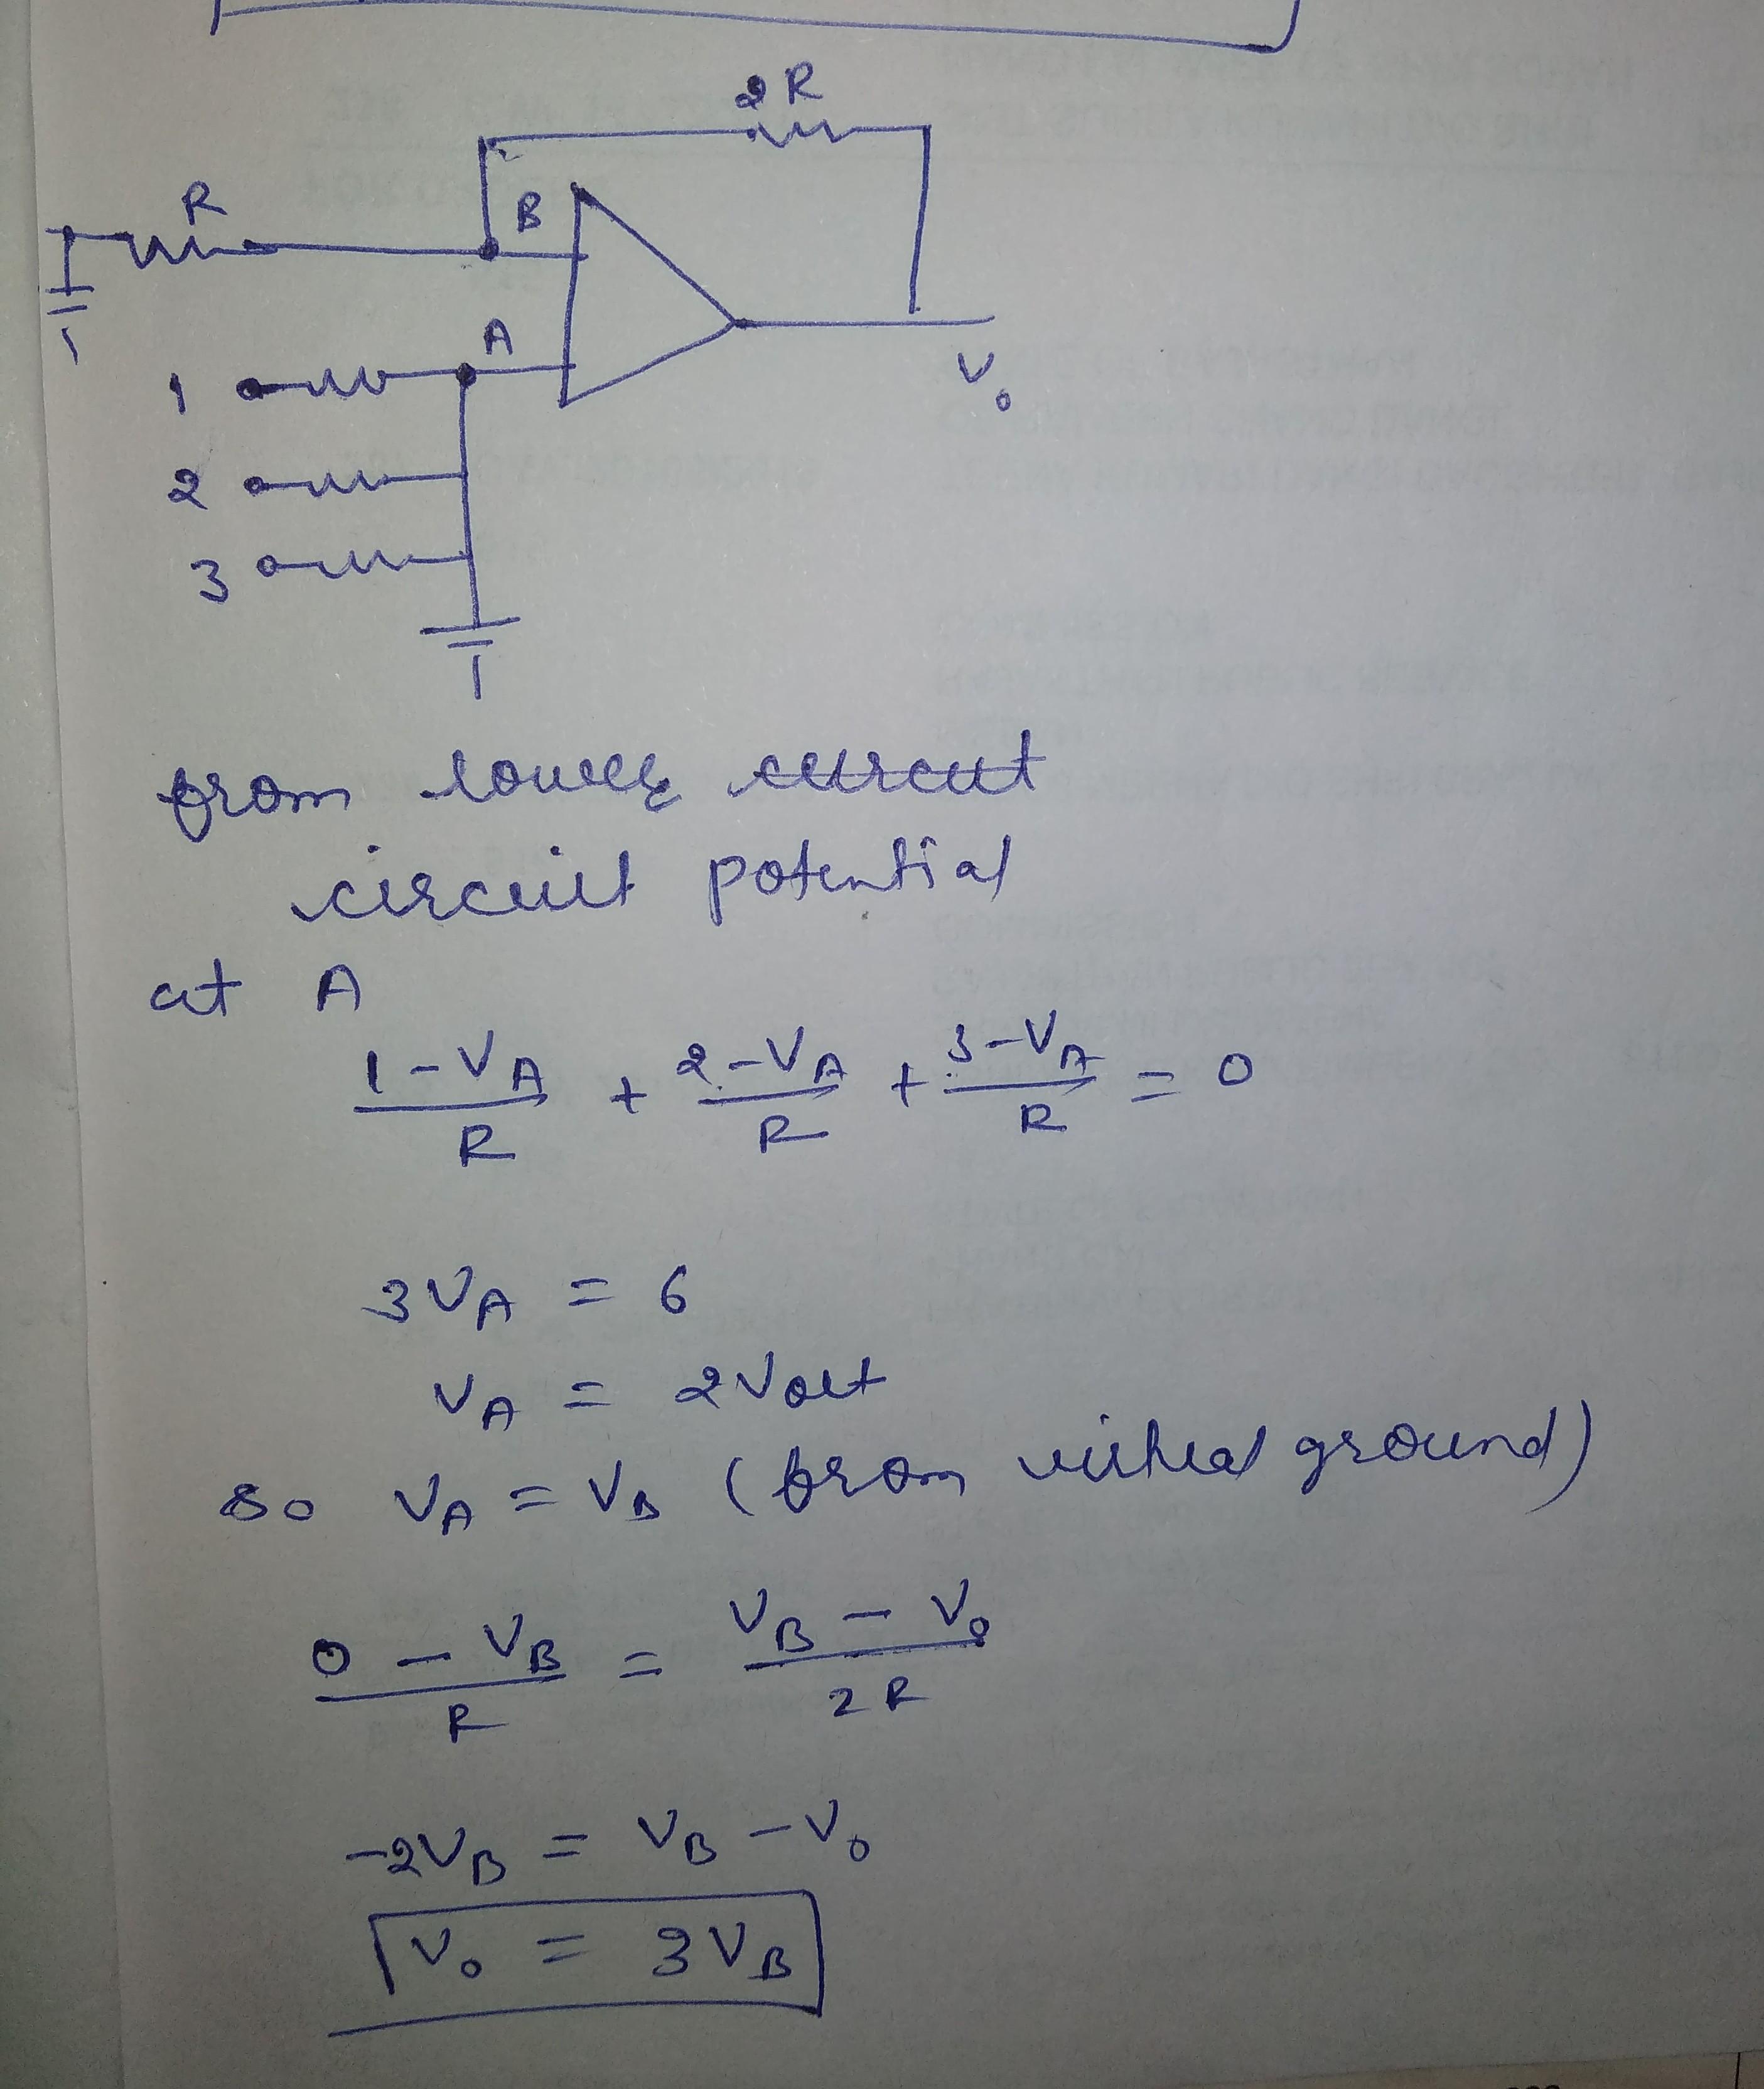 2R
R
B
A
V₀
1
2
3
from lower
circuit potential
at A
(1-V_A)/R + (2-V_A)/R + (3-V_A)/R = 0
3V_A = 6
V_A = 2 Volt
so V_A = V_B (from virtual ground)
(0 - V_B)/R = (V_B - V₀)/2R
-2V_B = V_B - V₀
V₀ = 3V_B